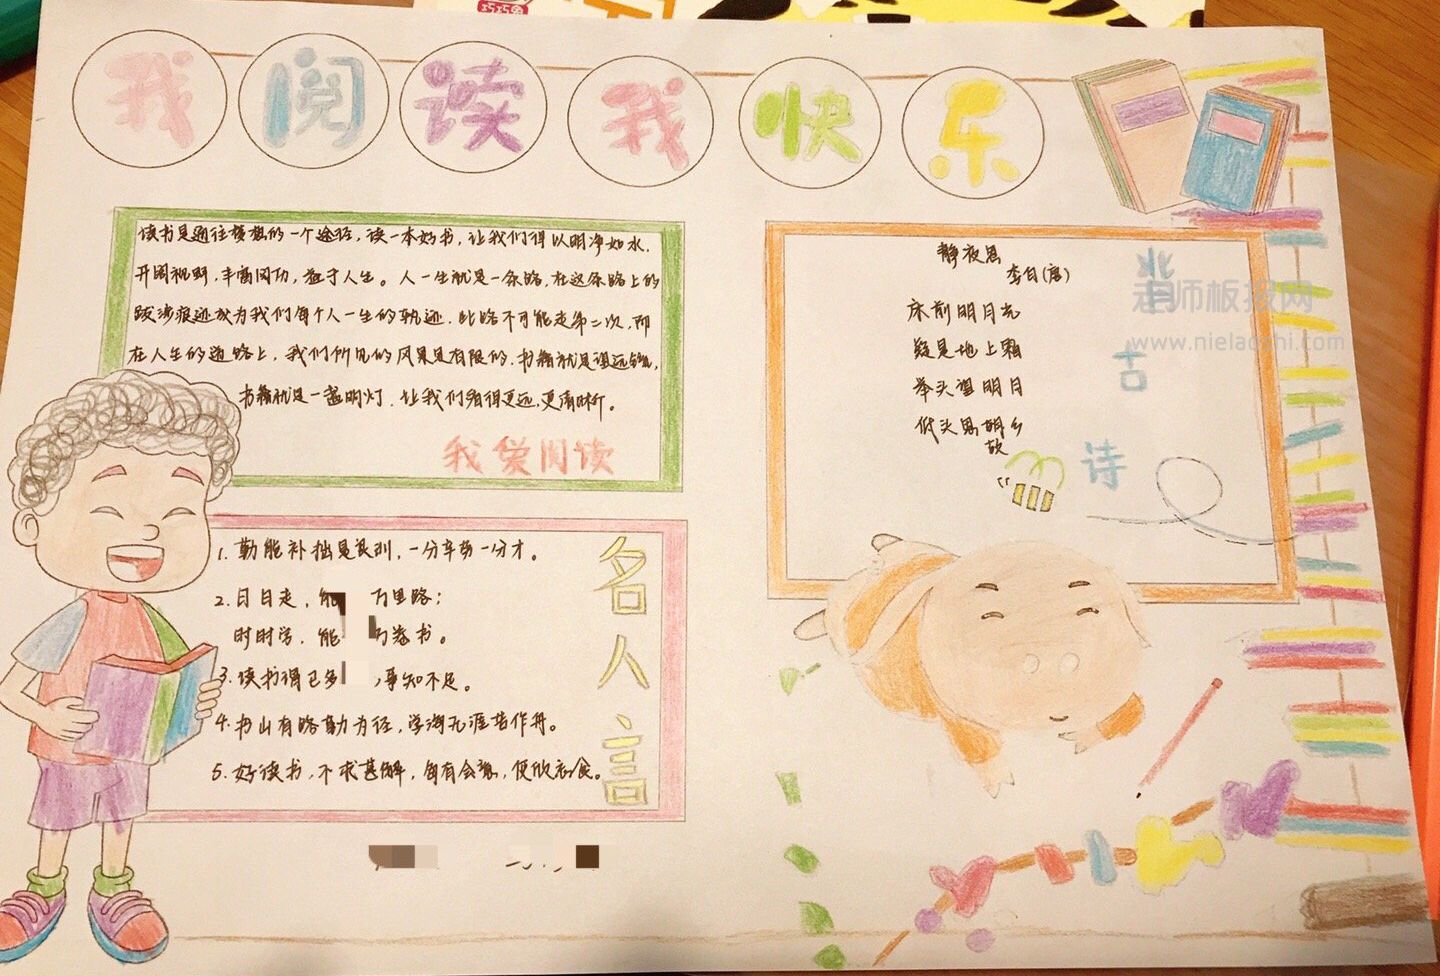 我阅读我快乐
读书是通往梦想的一个途径，读一本好书，让我们得以明净如水，
开阔视野，丰富阅历，益于人生。人一生就是一条路，在这条路上的
跋涉痕迹成为我们每个人一生的轨迹，此路不可能走第二次，而
在人生的道路上，我们所见的风景是有限的。书籍就是望远镜，
书籍就是一盏明灯，让我们看得更远，更清晰。
我爱阅读
静夜思
李白(唐)
床前明月光
疑是地上霜
举头望明月
低头思故乡
背古诗
老师板报网
www.nielaoshi.com
名人言
1. 勤能补拙是良训，一分辛劳一分才。
2. 日日走，能 万里路；
时时学，能 万卷书。
3. 读书谓已多 ，事知不足。
4. 书山有路勤为径，学海无涯苦作舟。
5. 好读书，不求甚解，每有会意，便欣忘食。